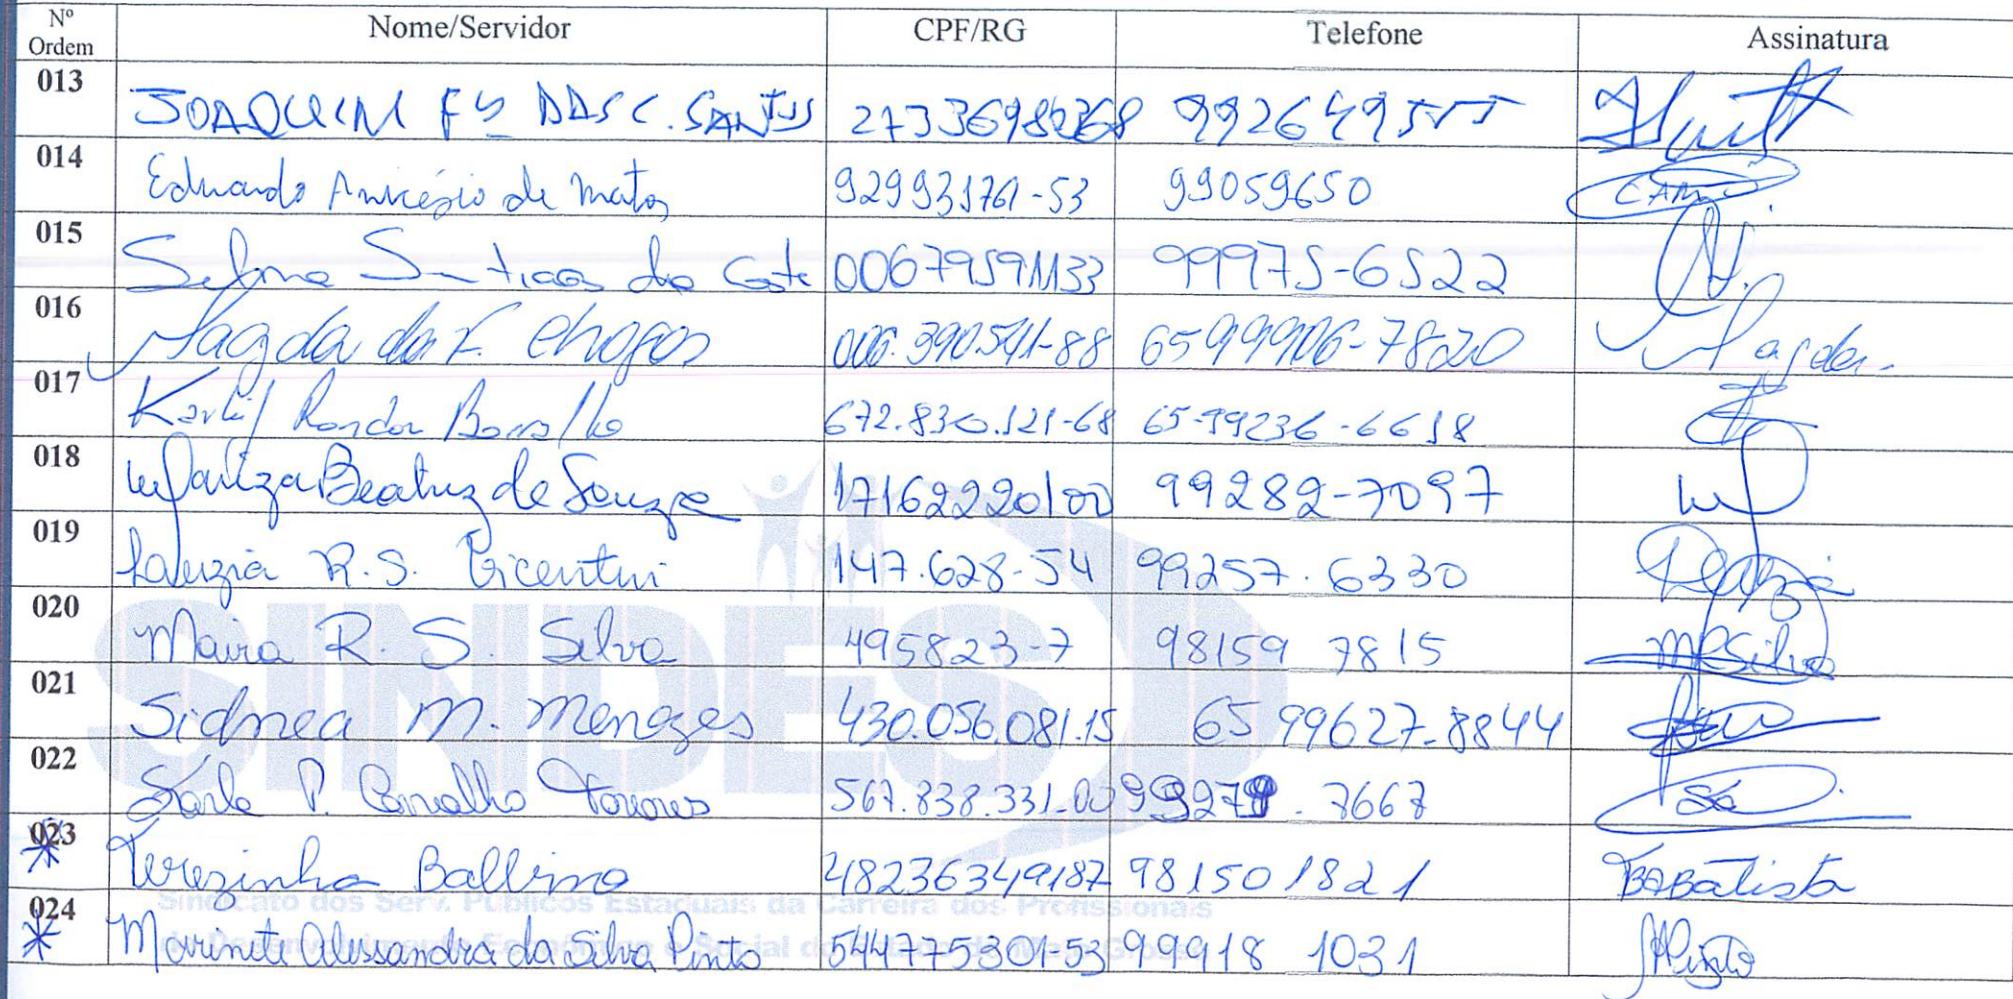 Nº Ordem Nome/Servidor CPF/RG Telefone Assinatura
013 JOAQUIM Fº DAS C. SANTOS 27336982368 992649555
014 Eduardo Anicésio de Matos 929931761-53 99059650
015 Selma Santiago da Costa 00679591133 99975-6522
016 Magda da F. Chagas 006.390.541-88 6599906-7820 Magda
017 Rondon Borralho 672.830.121-68 65-99236-6618
018 Mariza Beatriz de Souza 17162220100 99282-7097
019 R.S. Vicentini 147.628-54 99257.6330
020 Maria R. S. Silva 495823-7 98159 7815 MRSilva
021 Sidnea M. Menezes 430.056.081.15 65 99627-8844
022 P. Carvalho 567.838.331-00 99279.7667
023 Terezinha Balbino 48236349187 981501821 TBBatista
024 Marinete Alessandra da Silva Pinto 544775301-53 99918 1031
SINDES
Sindicato dos Serv. Públicos Estaduais da Carreira dos Profissionais
do Desenvolvimento Econômico e Social do Estado de Mato Grosso